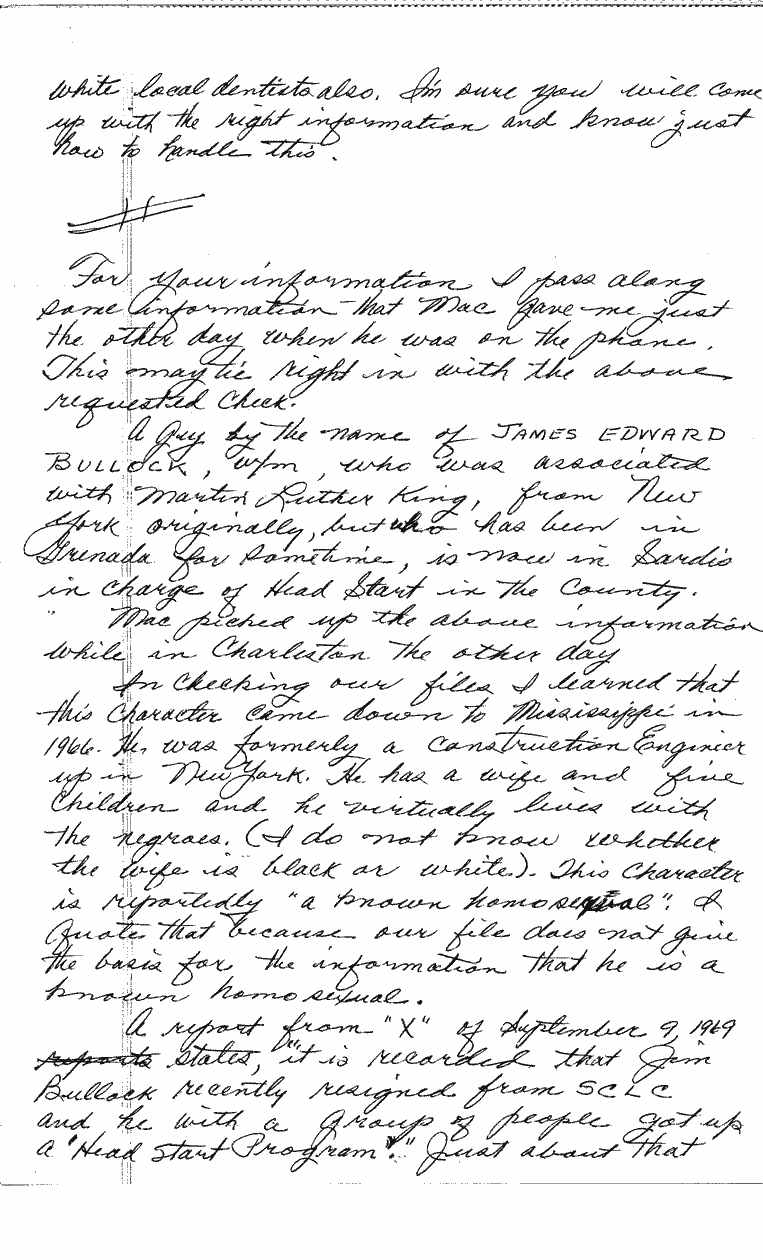 white local dentists also. I'm sure you will come
up with the right information and know just
how to handle this.
#
For your information I pass along
some information that Mac gave me just
the other day when he was on the phone.
This may tie right in with the above
requested check.
A guy by the name of JAMES EDWARD
BULLOCK, w/m, who was associated
with Martin Luther King, from New
York originally, but who has been in
Grenada for sometime, is now in Sardis
in charge of Head Start in the County.
Mac picked up the above information
while in Charleston the other day
In checking our files I learned that
this character came down to Mississippi in
1966. He was formerly a construction Engineer
up in New York. He has a wife and five
children and he virtually lives with
the negroes. (I do not know whether
the wife is black or white). This character
is reportedly "a known homosexual". I
quote that because our file does not give
the basis for the information that he is a
known homosexual.
A report from "X" of September 9, 1969
reports states, "it is recorded that Jim
Bullock recently resigned from SCLC
and he with a group of people got up
a "Head Start Program"." Just about that